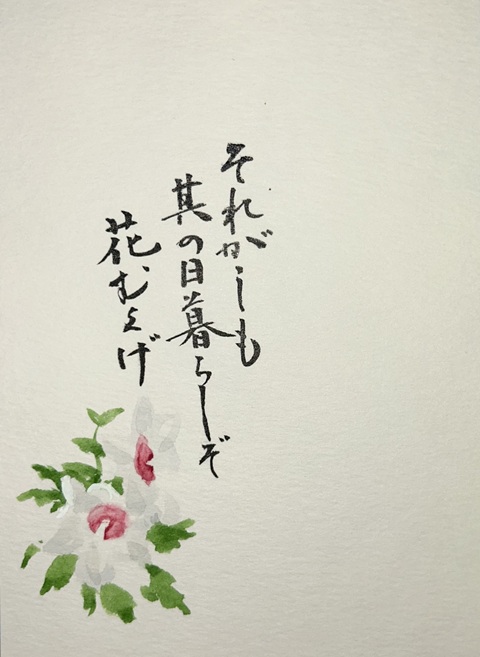 それがしも
其の日暮らしぞ
花むくげ